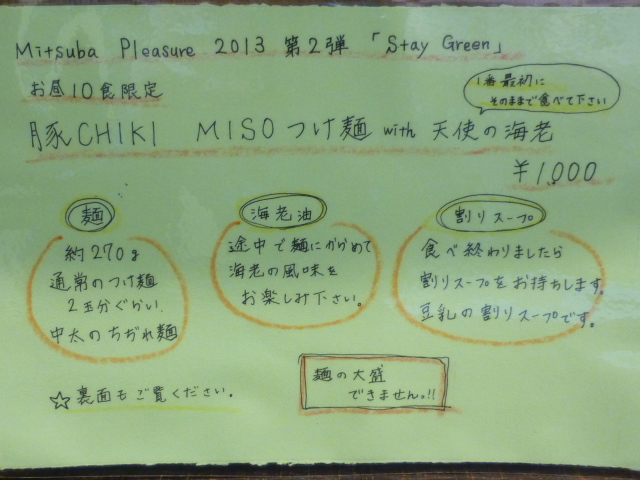 Mitsuba Pleasure 2013 第2弾 「Stay Green」
お昼10食限定
1番最初に
そのままで食べて下さい
豚CHIKI MISOつけ麺 with 天使の海老
¥1,000
麺
約270g
通常のつけ麺
2玉分ぐらい.
中太のちぢれ麺
海老油
途中で麺にからめて
海老の風味を
お楽しみ下さい。
割りスープ
食べ終わりましたら
割りスープをお持ちします。
豆乳の割りスープです。
麺の大盛
できませんっ!!
☆裏面もご覧ください。